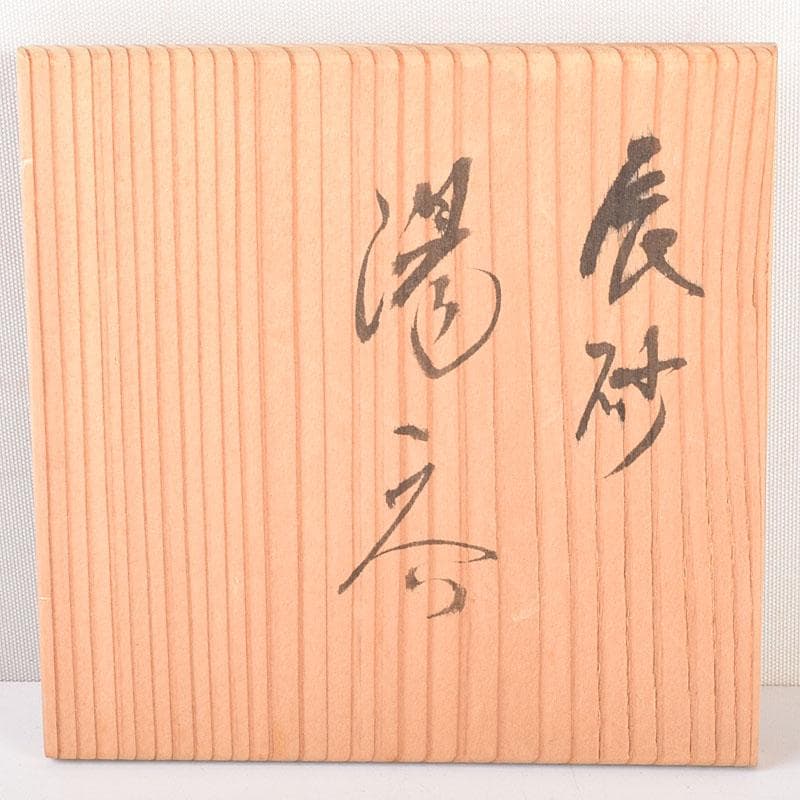 辰砂
湯呑